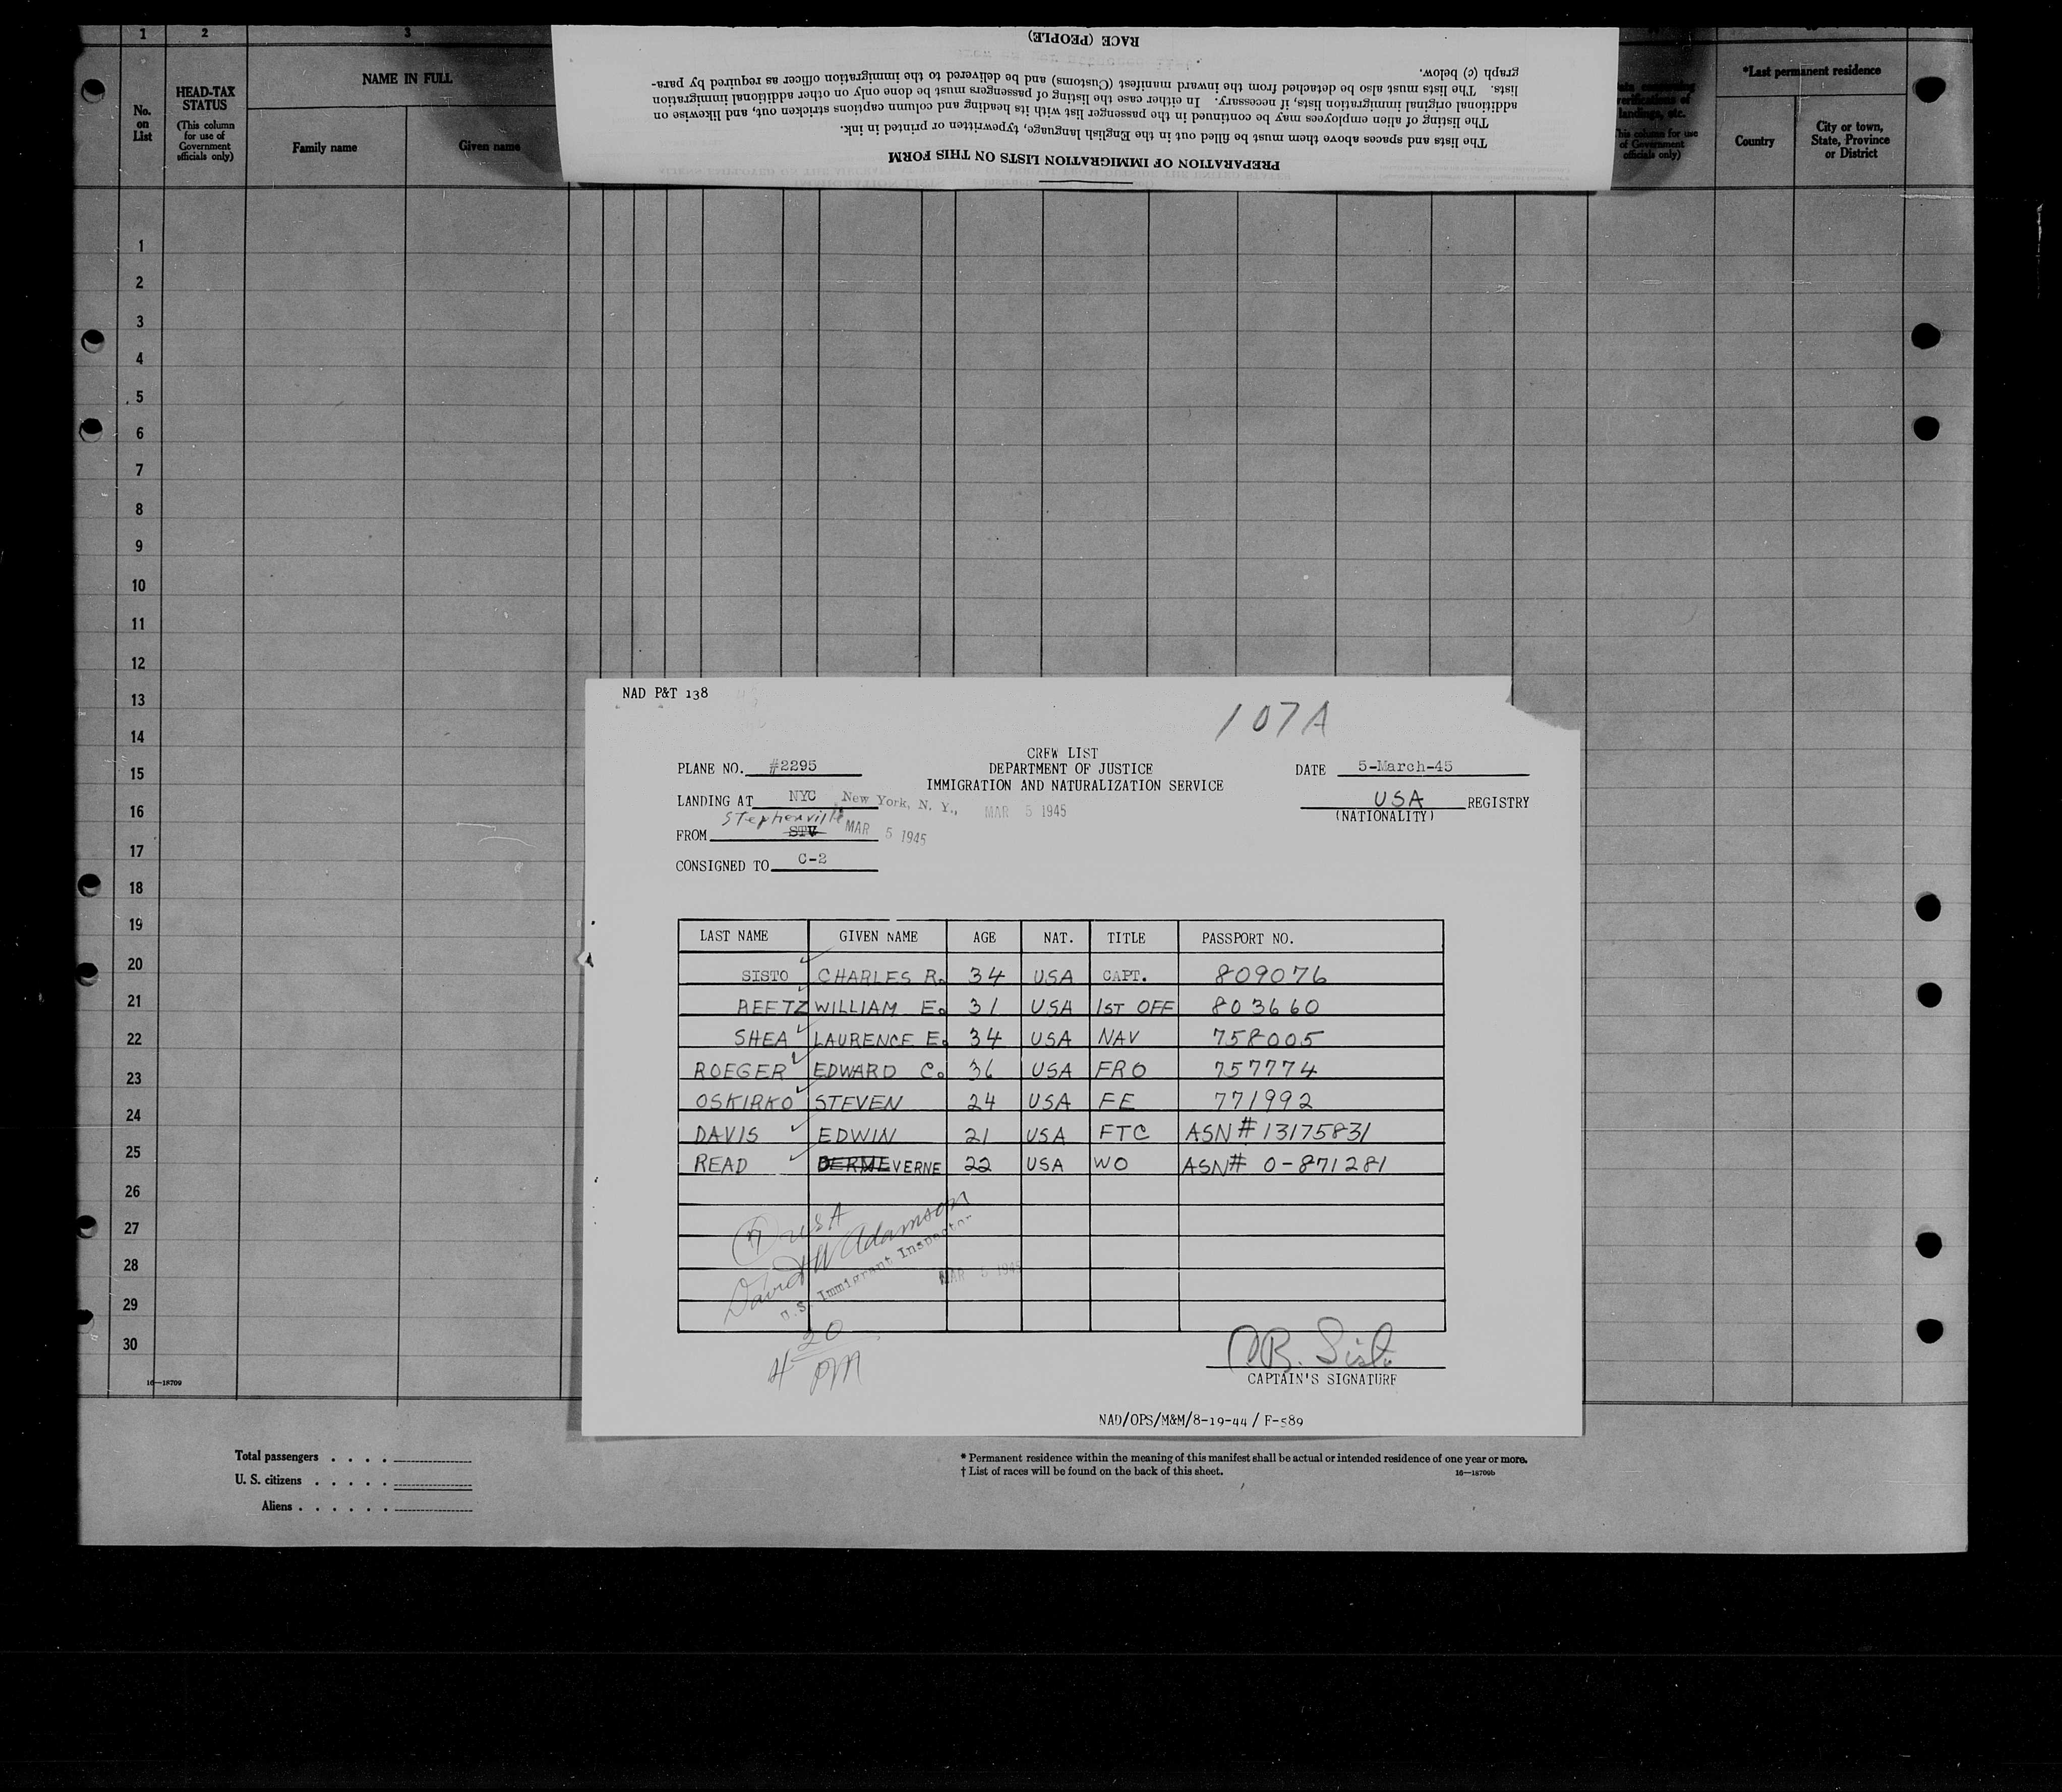 1 2 3
No. on List
HEAD-TAX STATUS
(This column for use of Government officials only)
NAME IN FULL
Family name Given name
RACE (PEOPLE)
graph (c) below.
lists. The lists must also be detached from the inward manifest (Customs) and be delivered to the immigration officer as required by para-
additional original immigration lists, if necessary. In either case the listing of passengers must be done only on other additional immigration
The listing of alien employees may be continued in the passenger list with its heading and column captions stricken out, and likewise on
The lists and spaces above them must be filled out in the English language, typewritten or printed in ink.
PREPARATION OF IMMIGRATION LISTS ON THIS FORM
verifications of
landings, etc.
column for use
of Government
officials only)
*Last permanent residence
Country
City or town, State, Province or District
1
2
3
4
5
6
7
8
9
10
11
12
13
14
15
16
17
18
19
20
21
22
23
24
25
26
27
28
29
30
16—18709
NAD P&T 138
107A
CREW LIST
PLANE NO. #2295 DEPARTMENT OF JUSTICE DATE 5-March-45
IMMIGRATION AND NATURALIZATION SERVICE
LANDING AT NYC New York, N. Y., MAR 5 1945 USA REGISTRY
(NATIONALITY)
Stephenville
FROM STV MAR 5 1945
CONSIGNED TO C-2
LAST NAME GIVEN NAME AGE NAT. TITLE PASSPORT NO.
SISTO CHARLES R. 34 USA CAPT. 809076
BEETZ WILLIAM E. 31 USA 1ST OFF 803660
SHEA LAURENCE E. 34 USA NAV 758005
ROEGER EDWARD C. 36 USA FRO 757774
OSKIRKO STEVEN 24 USA FE 771992
DAVIS EDWIN 21 USA FTC ASN # 13175831
READ VERNE 22 USA WO ASN# O-871281
(7) USA
David W Adamson
U.S. Immigrant Inspector
MAR 5 1945
4 20 PM
C R. Sisto
CAPTAIN'S SIGNATURE
NAD/OPS/M&M/8-19-44 / F-589
Total passengers . . . .
U. S. citizens . . . . .
Aliens . . . . . .
* Permanent residence within the meaning of this manifest shall be actual or intended residence of one year or more.
† List of races will be found on the back of this sheet.
16—18709b